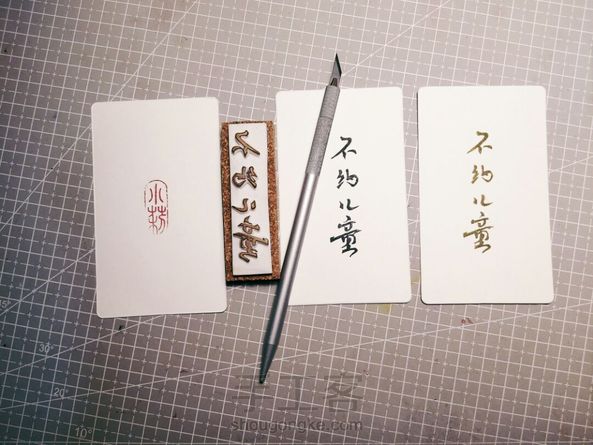 不约儿童
不约儿童
不约儿童
30°
20°
10°
手工客
shougongke.com